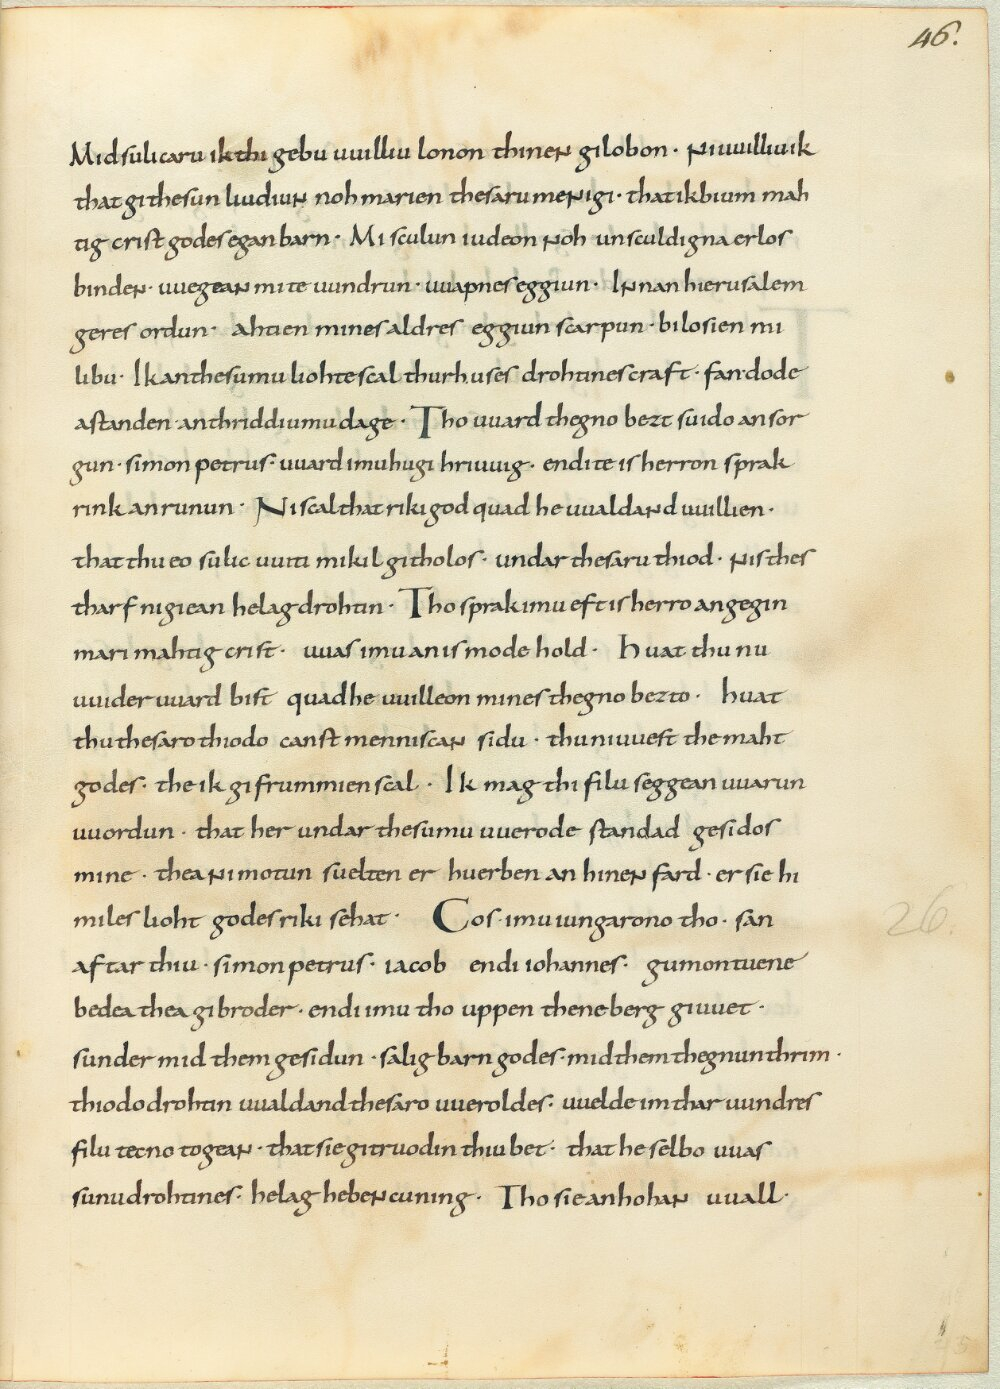 46.
Midsulicaru ik thi gebu uuilliu lonon thinen gilobon · niuuilliuik
that githesun liudiun noh marien thesaru menigi · thatikbium mah
tig crist godes egan barn · Mi sculun iudeon noh unsculdigna erlos
binden · uuegean mi te uundrun · uuapnes eggiun · Innan hierusalem
geres ordun · ahtien mines aldres eggiun scarpun · bilosien mi
libu · Ik an thesumu liohte scal thurh uses drohtines craft · fan dode
astanden an thriddiumu dage · Tho uuard thegno bezt suido an sor
gun · simon petrus · uuard imu hugi hriuuig · endi te is herron sprak
rink an runun · Ni scal that riki god quad he uualdand uuillien ·
that thu eo sulic uuiti mikil githolos · undar thesaru thiod · nis thes
tharf nigiean helag drohtin · Tho sprak imu eft is herro angegin
mari mahtig crist · uuas imu an is mode hold · Huat thu nu
uuideruuard bist quad he uuilleon mines thegno bezto · huat
thu thesaro thiodo canst menniscan sidu · thu ni uuest the maht
godes · the ik gifrummien scal · Ik mag thi filu seggean uuarun
uuordun · that her undar thesumu uuerode standad gesidos
mine · thea ni motun suelten er huerben an hinen fard · er sie hi
miles lioht godes riki sehat · Cos · imu iungarono tho · san
aftar thiu · simon petrus · iacob endi iohannes · gumon tuene
bedea thea gibroder · endi imu tho uppen thene berg giuuet ·
sunder mid them gesidun · salig barn godes · mid them thegnun thrim ·
thiodo drohtin uualdand thesaro uueroldes · uuelde im thar uundres
filu tecno togean · that sie gitruodin thiu bet · that he selbo uuas
sunu drohtines · helag hebencuning · Tho sie an hohan uuall ·
26.